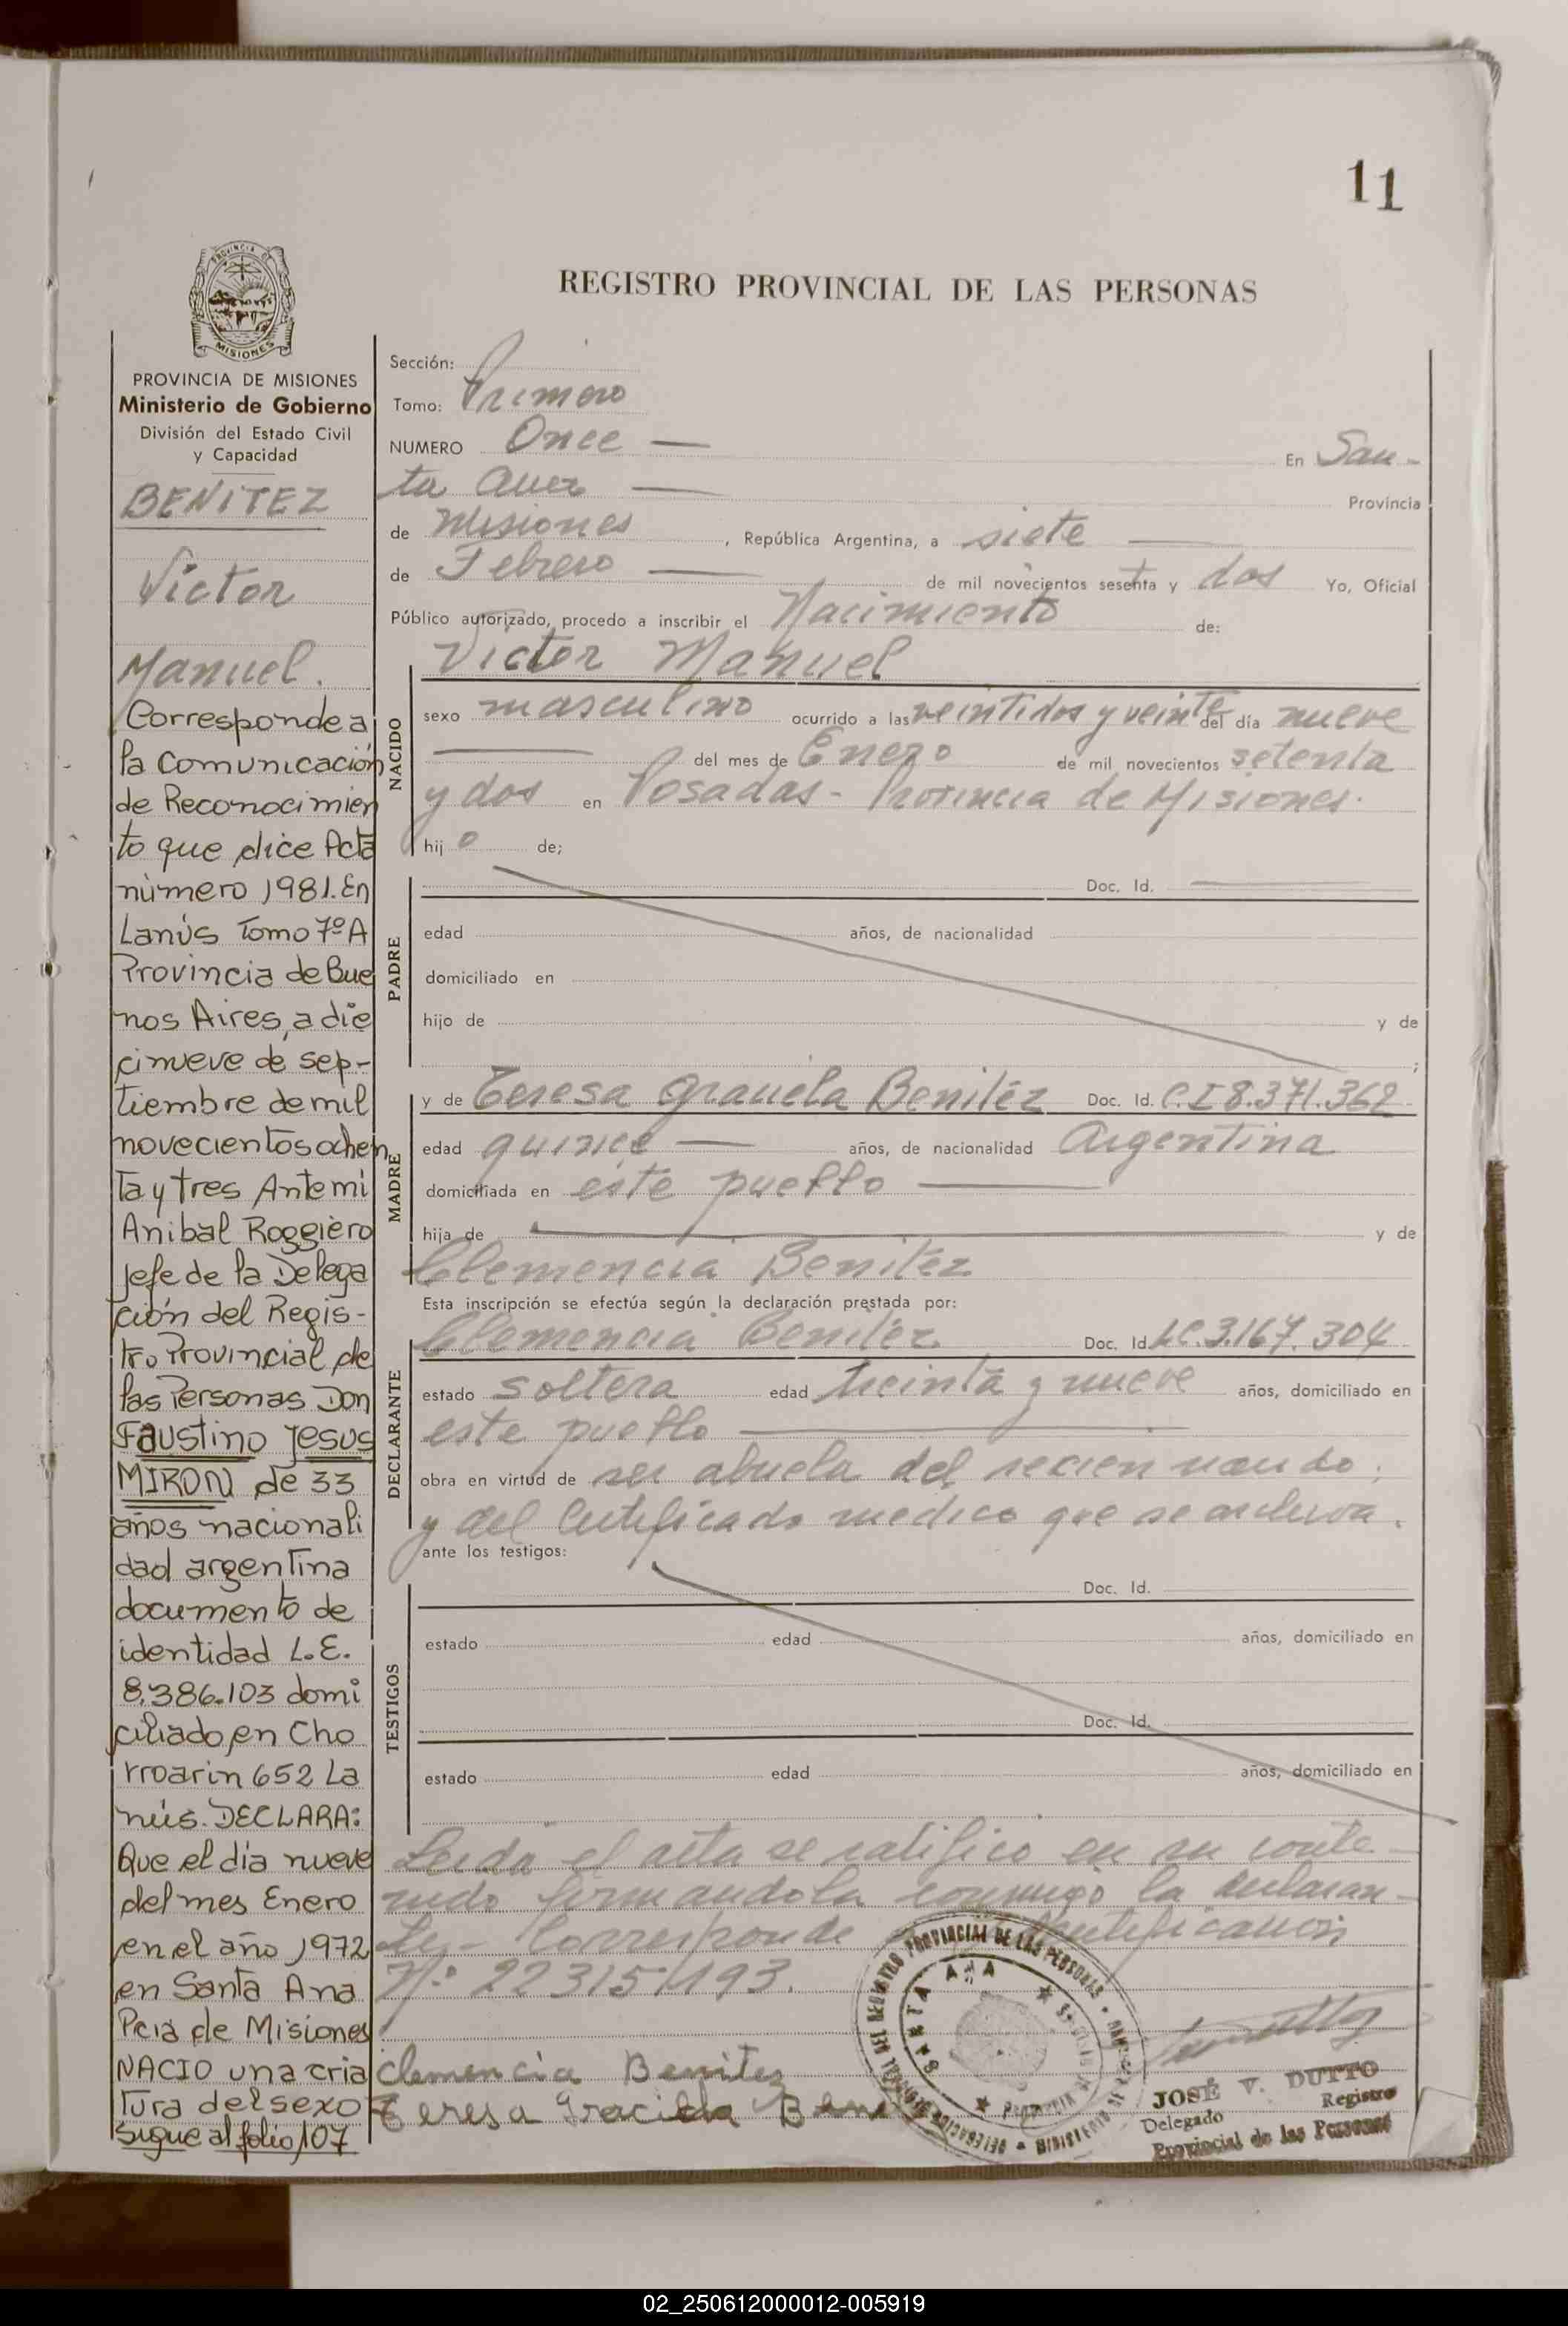 11
REGISTRO PROVINCIAL DE LAS PERSONAS
MISIONES
PROVINCIA DE MISIONES
Ministerio de Gobierno
División del Estado Civil
y Capacidad
BENITEZ
Victor
Manuel.
Corresponde a
la Comunicación
de Reconocimien
to que dice Acta
número 1981. En
Lanús Tomo 7º A
Provincia de Bue
nos Aires, a die
cinueve de sep-
tiembre de mil
novecientos ochen
ta y tres Ante mi
Anibal Roggiero
jefe de la Delega
ción del Regis-
tro Provincial de
las Personas Don
Faustino Jesus
MIRON de 33
años nacionali
dad argentina
documento de
identidad L.E.
8.386.103 domi
ciliado en Cho
rroarin 652 La
nús. DECLARA:
Que el día nueve
del mes Enero
en el año 1972
en Santa Ana
Pcia de Misiones
NACIO una cria
tura del sexo
Sigue al folio 107
Sección:
Tomo: Primero
NUMERO Once — En San-
ta — Provincia
de Misiones, República Argentina, a siete —
de Febrero — de mil novecientos sesenta y dos Yo, Oficial
Público autorizado, procedo a inscribir el Nacimiento de:
Victor Manuel
NACIDO
sexo masculino ocurrido a las veintidos y veinte del día nueve
— del mes de Enero de mil novecientos setenta
y dos en Posadas - Provincia de Misiones.
hij o de;
PADRE
Doc. Id. —
edad años, de nacionalidad
domiciliado en
hijo de y de
;
MADRE
y de Teresa Graciela Benitez Doc. Id. C.I 8.371.362
edad quince — años, de nacionalidad Argentina
domiciliada en este pueblo —
hija de — y de
Clemencia Benitez
Esta inscripción se efectúa según la declaración prestada por:
DECLARANTE
Clemencia Benitez Doc. Id. LC.3.167.304
estado soltera edad treinta y nueve años, domiciliado en
este pueblo —
obra en virtud de ser abuela del recien nacido;
y del Certificado medico que se archiva.
ante los testigos:
TESTIGOS
Doc. Id.
estado edad años, domiciliado en
Doc. Id.
estado edad años, domiciliado en
Leida el acta se ratifico en su conte-
nido firmandola conmigo la declaran-
te.- Corresponde Certificacion
Nº 22315/193.
Clemencia Benitez
Teresa Graciela
SANTA ANA
JOSÉ V. DUTTO
Delegado Registro
Provincial de las Personas
02_250612000012-005919